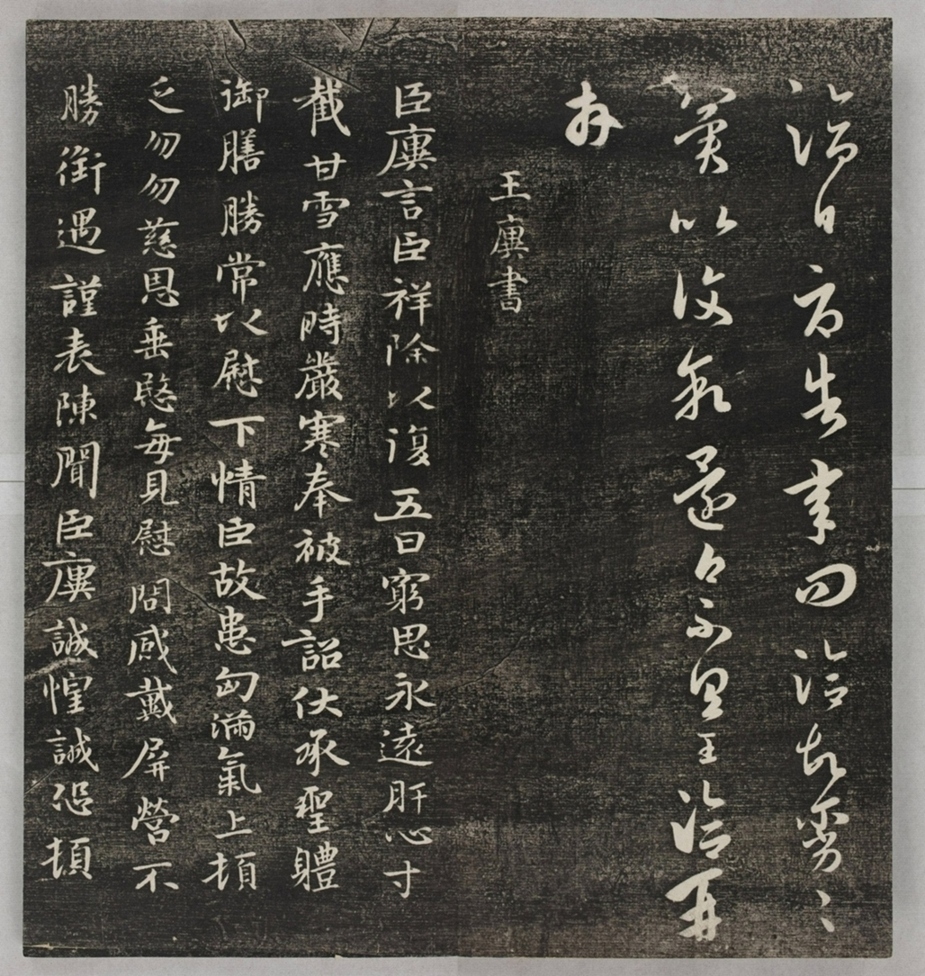 洽白 告 洽故劣〻
冀以 還白不具王洽再
拜
王廙書
臣廙言臣祥除以復五日窮思永遠肝心寸
截甘雪應時嚴寒奉被手詔伏承聖體
御膳勝常以慰下情臣故患匈滿氣上頓
乏勿勿慈恩垂愍每見慰問感戴屏營不
勝銜遇謹表陳聞臣廙誠惶誠恐頓